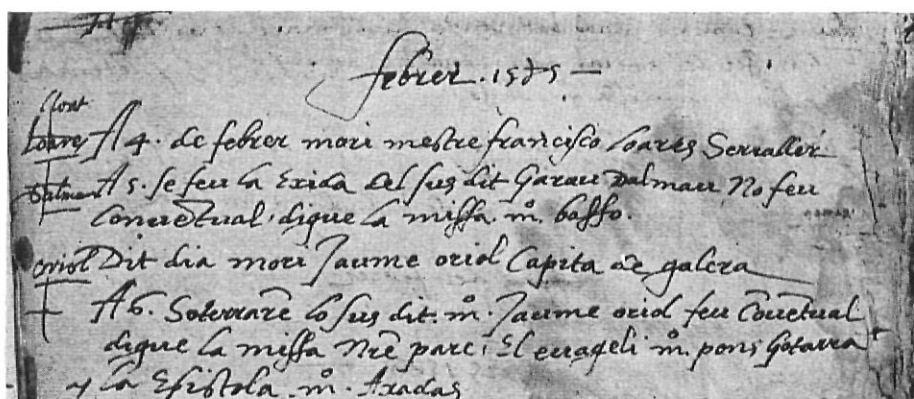 febrer. 1575 —
Loares A 4. de febrer mori mestre francisco loares Serraller
Dalmau A 5. se feu la Exida del sus dit Garau Dalmau No feu
Conuētual. digue la missa. mº. basso.
oriol Dit dia mori Jaume oriol Capita de galera
A 6. Soterrarē lo sus dit. mº. Jaume oriol feu Cōuētual
digue la missa Nrē pare: El euāgeli mº. pons Gotarra
y la Epistola. mº. Axadas